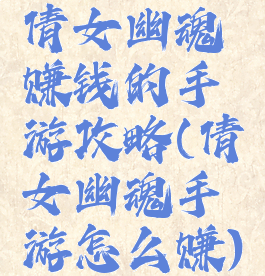 倩女幽魂
赚钱的手
游攻略(倩
女幽魂手
游怎么赚)